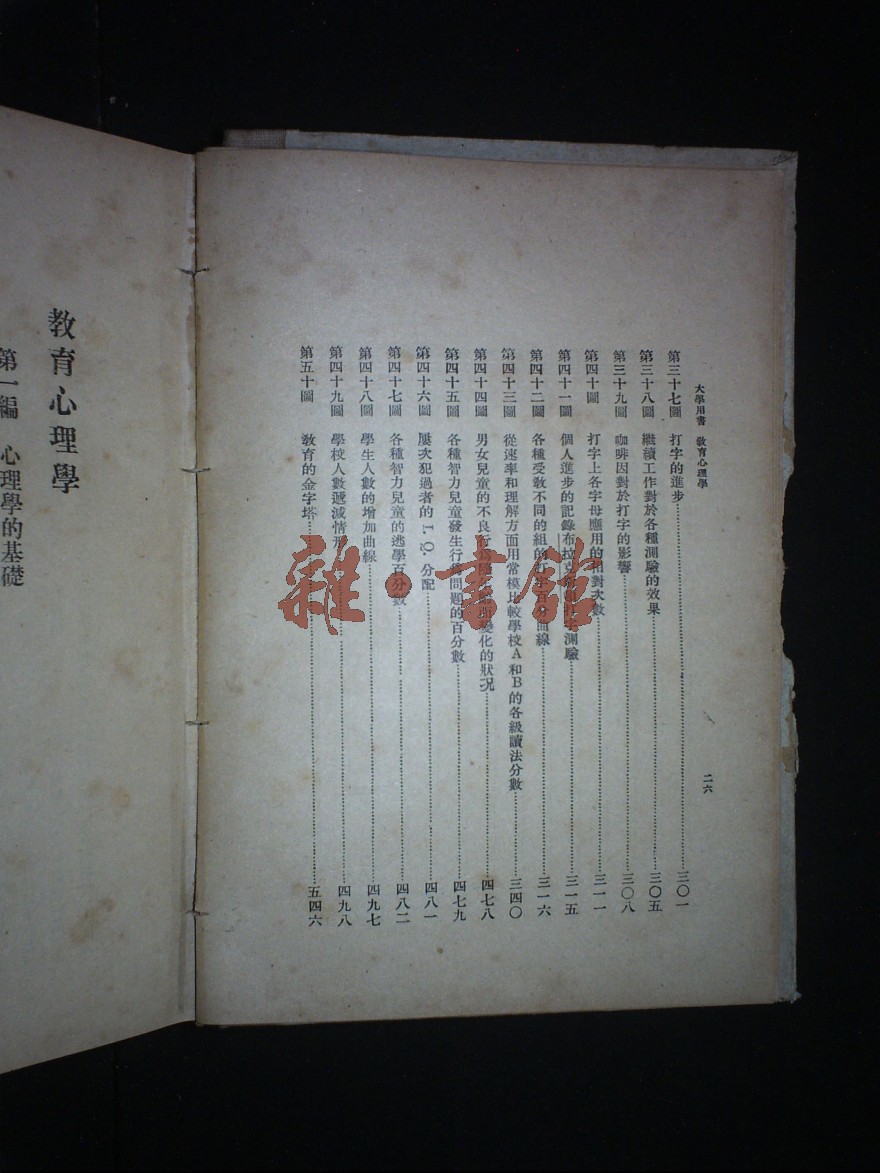 大學用書　教育心理學
二六
第三十七圖　打字的進步……三〇一
第三十八圖　繼續工作對於各種測驗的效果……三〇五
第三十九圖　咖啡因對於打字的影響……三〇八
第四十圖　打字上各字母應用的相對次數……三一一
第四十一圖　個人進步的記錄布拉克　測驗……三一五
第四十二圖　各種受教不同的組的打字百分曲線……三一六
第四十三圖　從速率和理解方面用常模比較學校A和B的各級讀法分數……三四〇
第四十四圖　男女兒童的不良行爲　變化的狀況……四七八
第四十五圖　各種智力兒童發生行爲問題的百分數……四七九
第四十六圖　屢次犯過者的I.Q.分配……四八一
第四十七圖　各種智力兒童的逃學百分數……四八二
第四十八圖　學生人數的增加曲線……四九七
第四十九圖　學校人數遞減情形……四九八
第五十圖　教育的金字塔……五四六
教育心理學
第一編　心理學的基礎
雜·書館